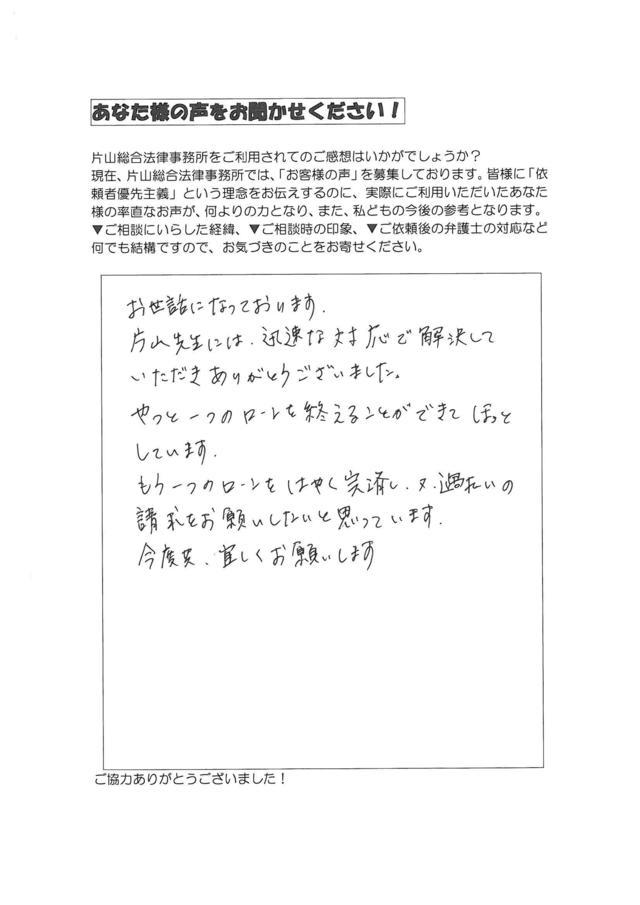 あなた様の声をお聞かせください！
片山総合法律事務所をご利用されてのご感想はいかがでしょうか？
現在、片山総合法律事務所では、「お客様の声」を募集しております。皆様に「依
頼者優先主義」という理念をお伝えするのに、実際にご利用いただいたあなた
様の率直なお声が、何よりの力となり、また、私どもの今後の参考となります。
▼ご相談にいらした経緯、▼ご相談時の印象、▼ご依頼後の弁護士の対応など
何でも結構ですので、お気づきのことをお寄せください。
お世話になっております.
片山先生には、迅速な対応で解決して
いただきありがとうございました。
やっと一つのローンを終えることができて ほっと
しています.
もう一つのローンをはやく完済し、又、過払いの
請求をお願いしたいと思っています.
今度共、宜しくお願いします
ご協力ありがとうございました！